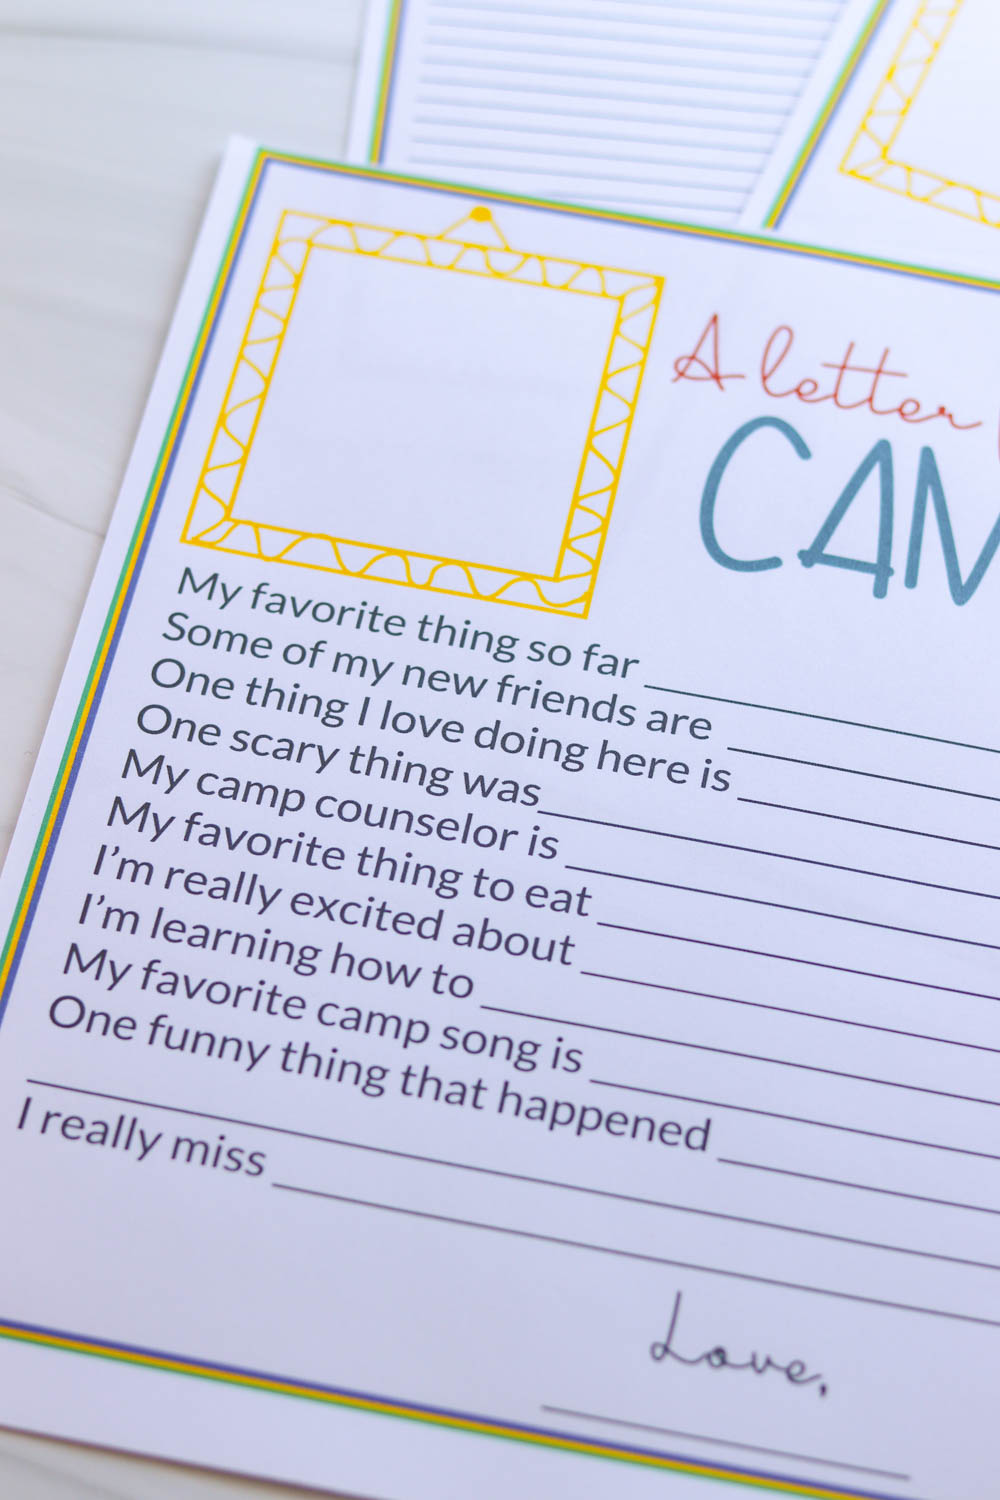 A letter
CAM
My favorite thing so far
Some of my new friends are
One thing I love doing here is
One scary thing was
My camp counselor is
My favorite thing to eat
I'm really excited about
I'm learning how to
My favorite camp song is
One funny thing that happened
I really miss
Love,